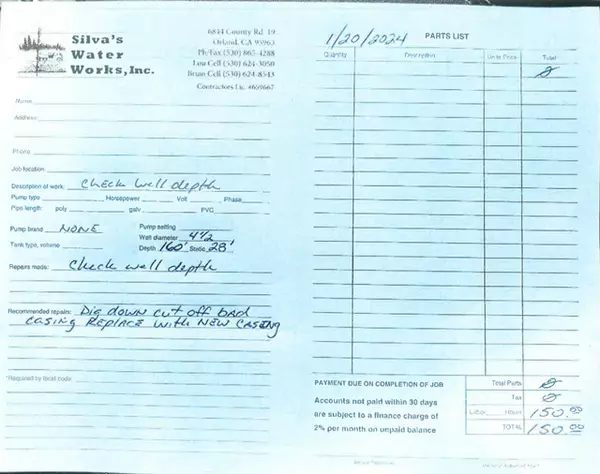 Silva's
Water
Works, Inc.
6844 County Rd 19
Orland, CA 95963
Ph/Fax (530) 865-4288
Lou Cell (530) 624-3050
Brian Cell (530) 624-8543
Contractors Lic. #659667
Name
Address
Phone
Job location
Description of work: Check well depth
Pump type Horsepower Volt Phase
Pipe length: poly galv PVC
Pump brand NONE Pump setting
Well diameter 4 1/2
Tank type, volume Depth 160' Static 28'
Repairs made: Check well depth
Recommended repairs: Dig down cut off bad
casing Replace with New Casing
*Required by local code:
1/20/2024 PARTS LIST
Quantity Description Unit Price Total
0
PAYMENT DUE ON COMPLETION OF JOB
Accounts not paid within 30 days
are subject to a finance charge of
2% per month on unpaid balance
Total Parts 0
Tax 0
Labor Hours 150.00
TOTAL 150.00